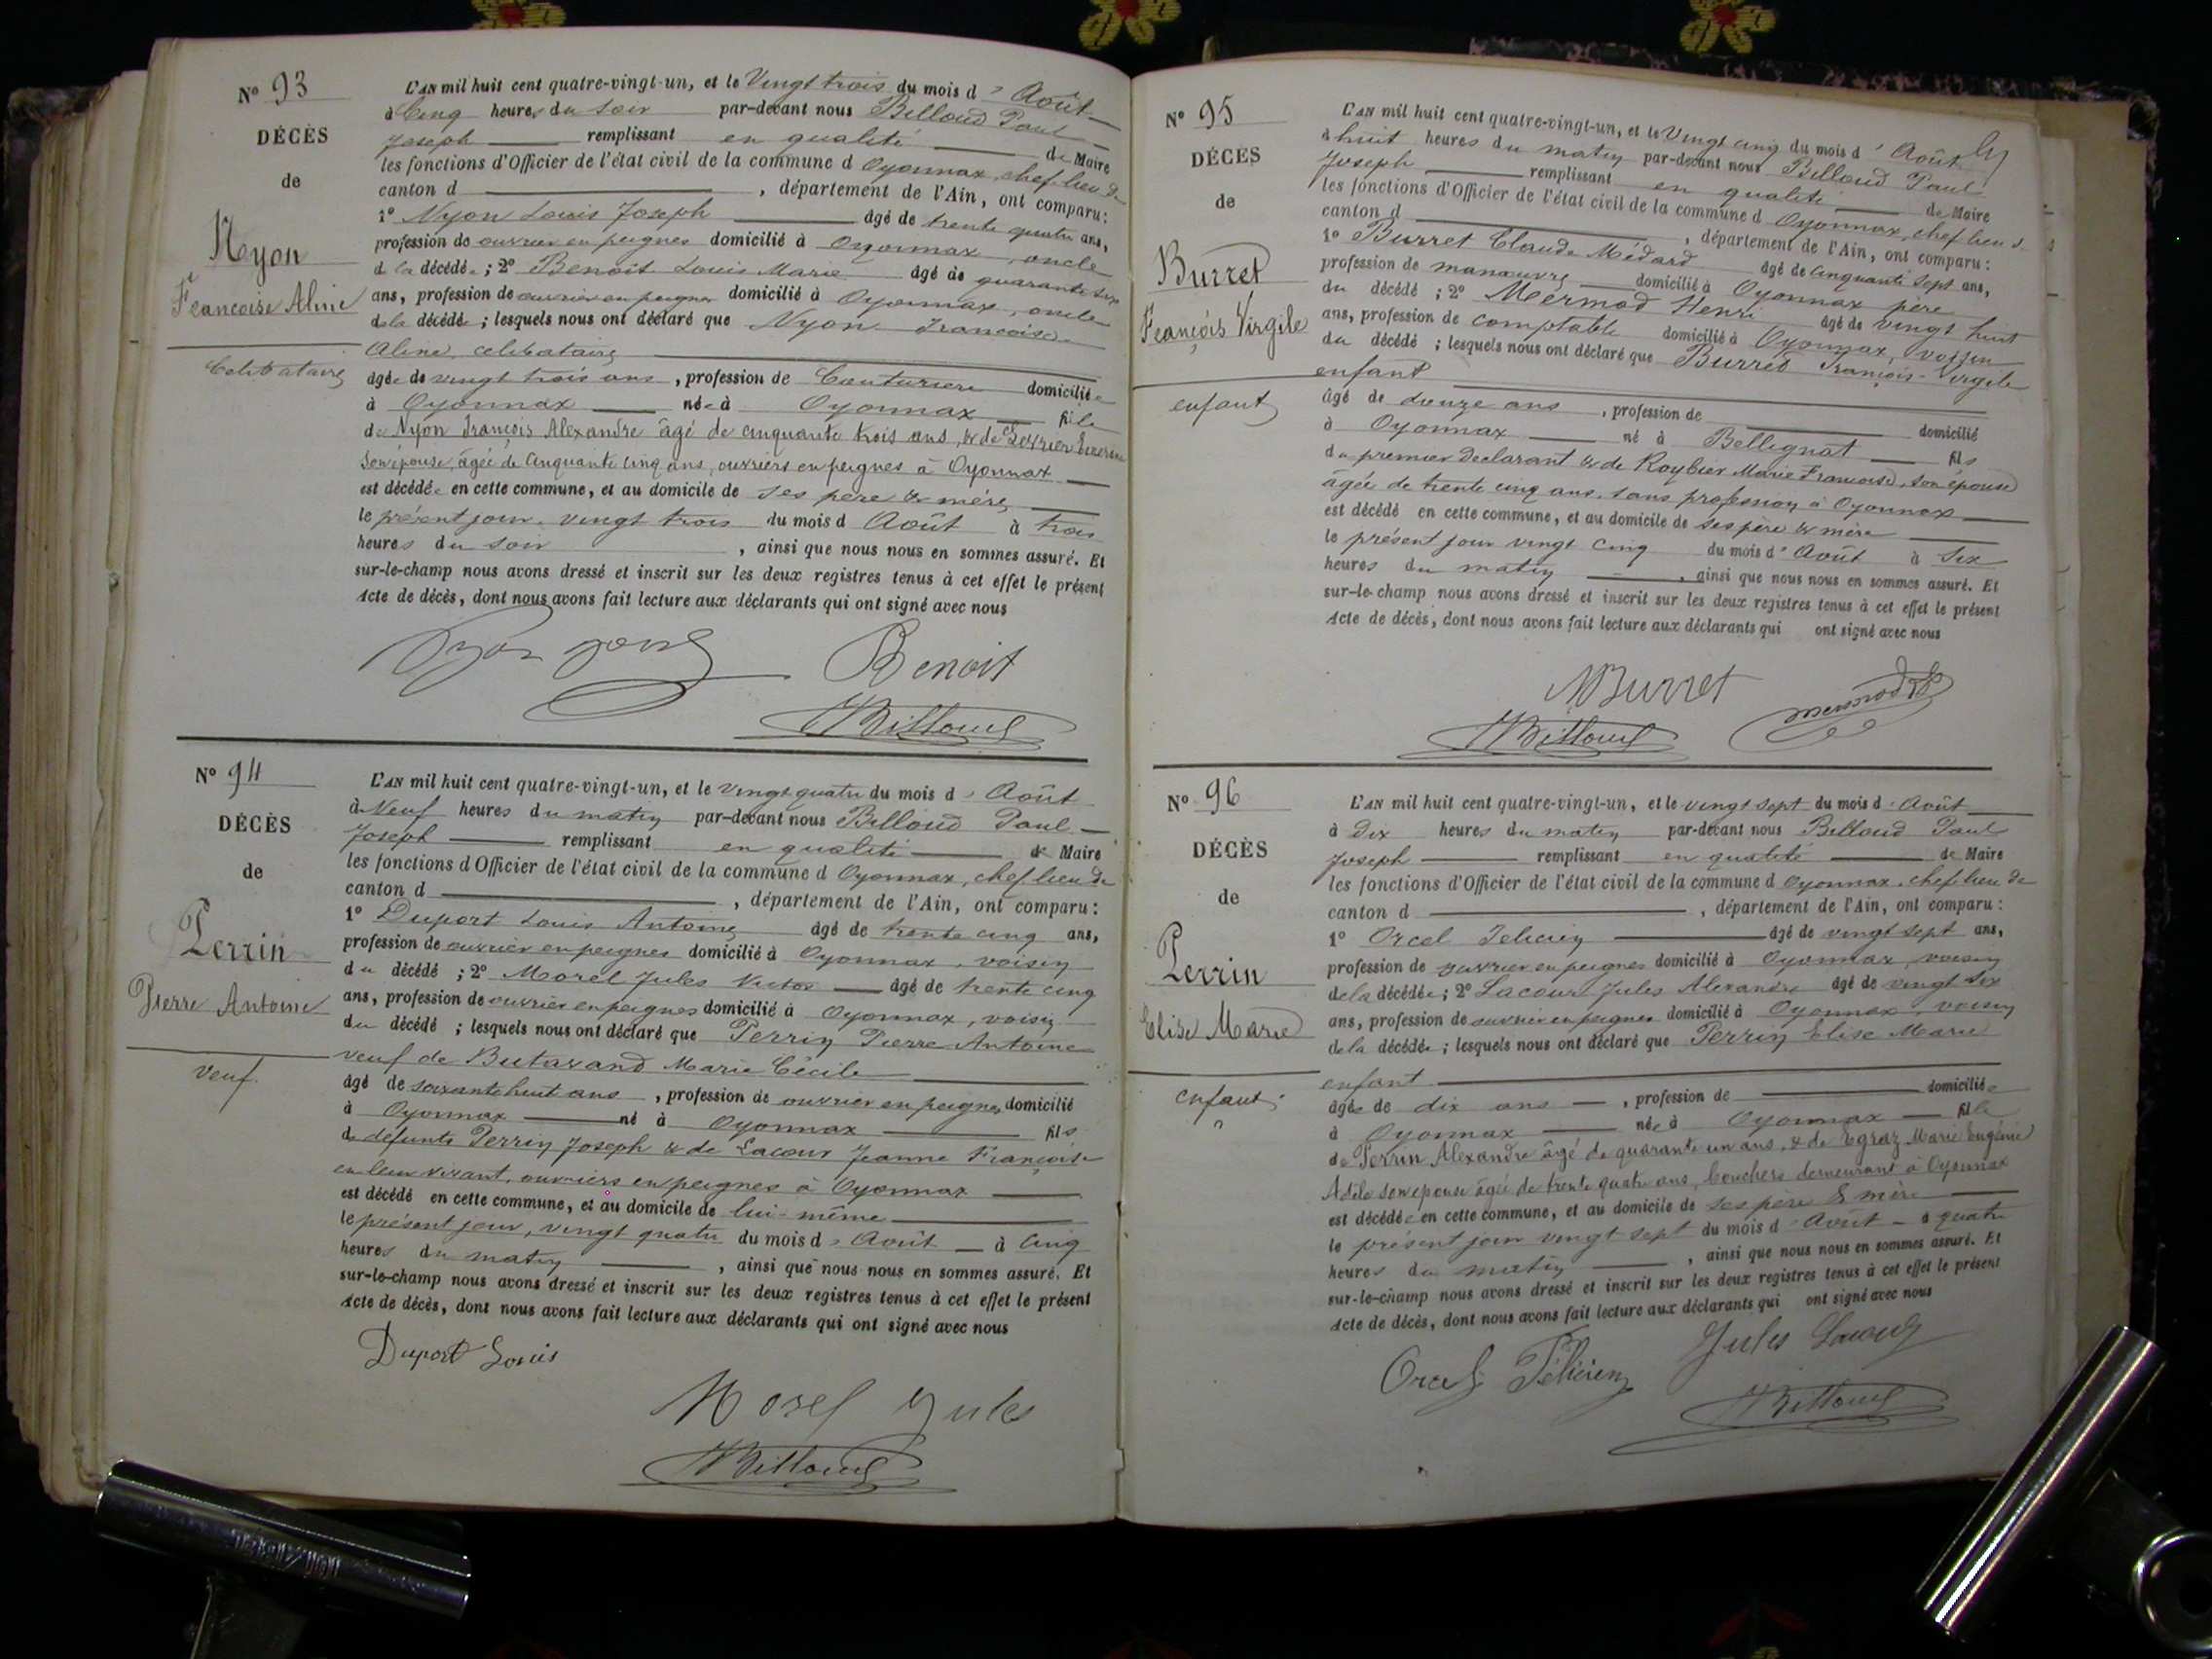 N° 93
DÉCÈS
de
Nyon
Françoise Aline
Célibataire
L'AN mil huit cent quatre-vingt-un, et le Vingt trois du mois d' Août
à Cinq heures du soir par-devant nous Billoud Paul
Joseph remplissant en qualité de Maire
les fonctions d'Officier de l'état civil de la commune d Oyonnax, chef lieu de
canton d , département de l'Ain, ont comparu:
1° Nyon Louis Joseph âgé de trente quatre ans,
profession de ouvrier en peignes domicilié à Oyonnax, oncle
de la décédée; 2° Benoit Louis Marie âgé de quarante six
ans, profession de ouvrier en peignes domicilié à Oyonnax, oncle
de la décédée; lesquels nous ont déclaré que Nyon Françoise
Aline, célibataire
âgée de vingt trois ans, profession de Couturière domiciliée
à Oyonnax née à Oyonnax fille
de Nyon François Alexandre âgé de cinquante trois ans, & de
son épouse, âgée de cinquante cinq ans, ouvriers en peignes à Oyonnax
est décédée en cette commune, et au domicile de ses père & mère
le présent jour, vingt trois du mois d Août à trois
heures du soir, ainsi que nous nous en sommes assuré. Et
sur-le-champ nous avons dressé et inscrit sur les deux registres tenus à cet effet le présent
Acte de décès, dont nous avons fait lecture aux déclarants qui ont signé avec nous
Benoit
Billoud
N° 94
DÉCÈS
de
Perrin
Pierre Antoine
veuf.
L'AN mil huit cent quatre-vingt-un, et le vingt quatre du mois d' Août
à Neuf heures du matin par-devant nous Billoud Paul
Joseph remplissant en qualité de Maire
les fonctions d'Officier de l'état civil de la commune d Oyonnax, chef lieu de
canton d , département de l'Ain, ont comparu:
1° Duport Louis Antoine âgé de trente cinq ans,
profession de ouvrier en peignes domicilié à Oyonnax, voisin
du décédé; 2° Morel Jules Victor âgé de trente cinq
ans, profession de ouvrier en peignes domicilié à Oyonnax, voisin
du décédé; lesquels nous ont déclaré que Perrin Pierre Antoine
veuf de Butavand Marie Cécile
âgé de soixante huit ans, profession de ouvrier en peignes domicilié
à Oyonnax né à Oyonnax fils
de défunts Perrin Joseph & de Lacour Jeanne Françoise
en leur vivant, ouvriers en peignes à Oyonnax
est décédé en cette commune, et au domicile de lui-même
le présent jour, vingt quatre du mois d' Août à cinq
heures du matin, ainsi que nous nous en sommes assuré. Et
sur-le-champ nous avons dressé et inscrit sur les deux registres tenus à cet effet le présent
Acte de décès, dont nous avons fait lecture aux déclarants qui ont signé avec nous
Duport Louis
Morel Jules
Billoud
N° 95
DÉCÈS
de
Burret
François Virgile
enfant
L'AN mil huit cent quatre-vingt-un, et le Vingt cinq du mois d' Août
à huit heures du matin par-devant nous Billoud Paul
Joseph remplissant en qualité de Maire
les fonctions d'Officier de l'état civil de la commune d Oyonnax, chef lieu de
canton d , département de l'Ain, ont comparu:
1° Burret Claude Médard âgé de cinquante sept ans,
profession de manœuvre domicilié à Oyonnax père
du décédé; 2° Mermod Henri âgé de vingt huit
ans, profession de comptable domicilié à Oyonnax, voisin
du décédé; lesquels nous ont déclaré que Burret François-Virgile
enfant
âgé de douze ans, profession de domicilié
à Oyonnax né à Bellignat fils
du premier déclarant & de Roybier Marie Françoise, son épouse
âgée de trente cinq ans, sans profession à Oyonnax
est décédé en cette commune, et au domicile de ses père & mère
le présent jour vingt cinq du mois d' Août à six
heures du matin, ainsi que nous nous en sommes assuré. Et
sur-le-champ nous avons dressé et inscrit sur les deux registres tenus à cet effet le présent
Acte de décès, dont nous avons fait lecture aux déclarants qui ont signé avec nous
Burret
Mermod
Billoud
N° 96
DÉCÈS
de
Perrin
Elise Marie
enfant
L'AN mil huit cent quatre-vingt-un, et le vingt sept du mois d' Août
à Dix heures du matin par-devant nous Billoud Paul
Joseph remplissant en qualité de Maire
les fonctions d'Officier de l'état civil de la commune d Oyonnax, chef lieu de
canton d , département de l'Ain, ont comparu:
1° Orcel Félicien âgé de vingt sept ans,
profession de ouvrier en peignes domicilié à Oyonnax, voisin
de la décédée; 2° Lacour Jules Alexandre âgé de vingt six
ans, profession de ouvrier en peignes domicilié à Oyonnax, voisin
de la décédée; lesquels nous ont déclaré que Perrin Elise Marie
enfant
âgée de dix ans, profession de domiciliée
à Oyonnax née à Oyonnax fille
de Perrin Alexandre âgé de quarante un ans, & de Egraz Marie Eugénie
Adèle son épouse âgée de trente quatre ans, bouchers demeurant à Oyonnax
est décédée en cette commune, et au domicile de ses père & mère
le présent jour vingt sept du mois d' Août à quatre
heures du matin, ainsi que nous nous en sommes assuré. Et
sur-le-champ nous avons dressé et inscrit sur les deux registres tenus à cet effet le présent
Acte de décès, dont nous avons fait lecture aux déclarants qui ont signé avec nous
Orcel Félicien
Jules Lacour
Billoud